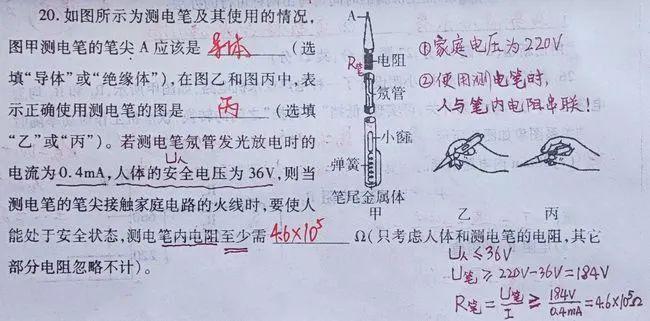 20. 如图所示为测电笔及其使用的情况,
图甲测电笔的笔尖 A 应该是 导体 (选
填“导体”或“绝缘体”),在图乙和图丙中,表
示正确使用测电笔的图是 丙 (选填
“乙”或“丙”)。若测电笔氖管发光放电时的
U人
电流为 0.4mA,人体的安全电压为 36V,则当
测电笔的笔尖接触家庭电路的火线时,要使人
能处于安全状态,测电笔内电阻至少需 4.6×10⁵ Ω(只考虑人体和测电笔的电阻,其它
部分电阻忽略不计)。
A
R笔 电阻
氖管
小窗
弹簧
笔尾金属体
甲
乙
丙
①家庭电压为220V
②使用测电笔时,
人与笔内电阻串联!
U人≤36V
U笔≥220V-36V=184V
R笔=U笔/I≥184V/0.4mA=4.6×10⁵Ω